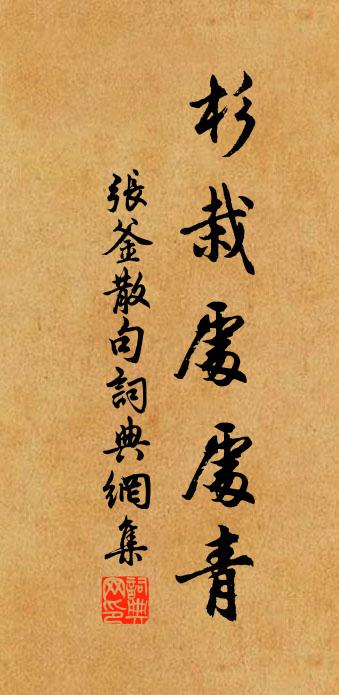 杉栽處處青
張釜散句詞典網集
詞典網印